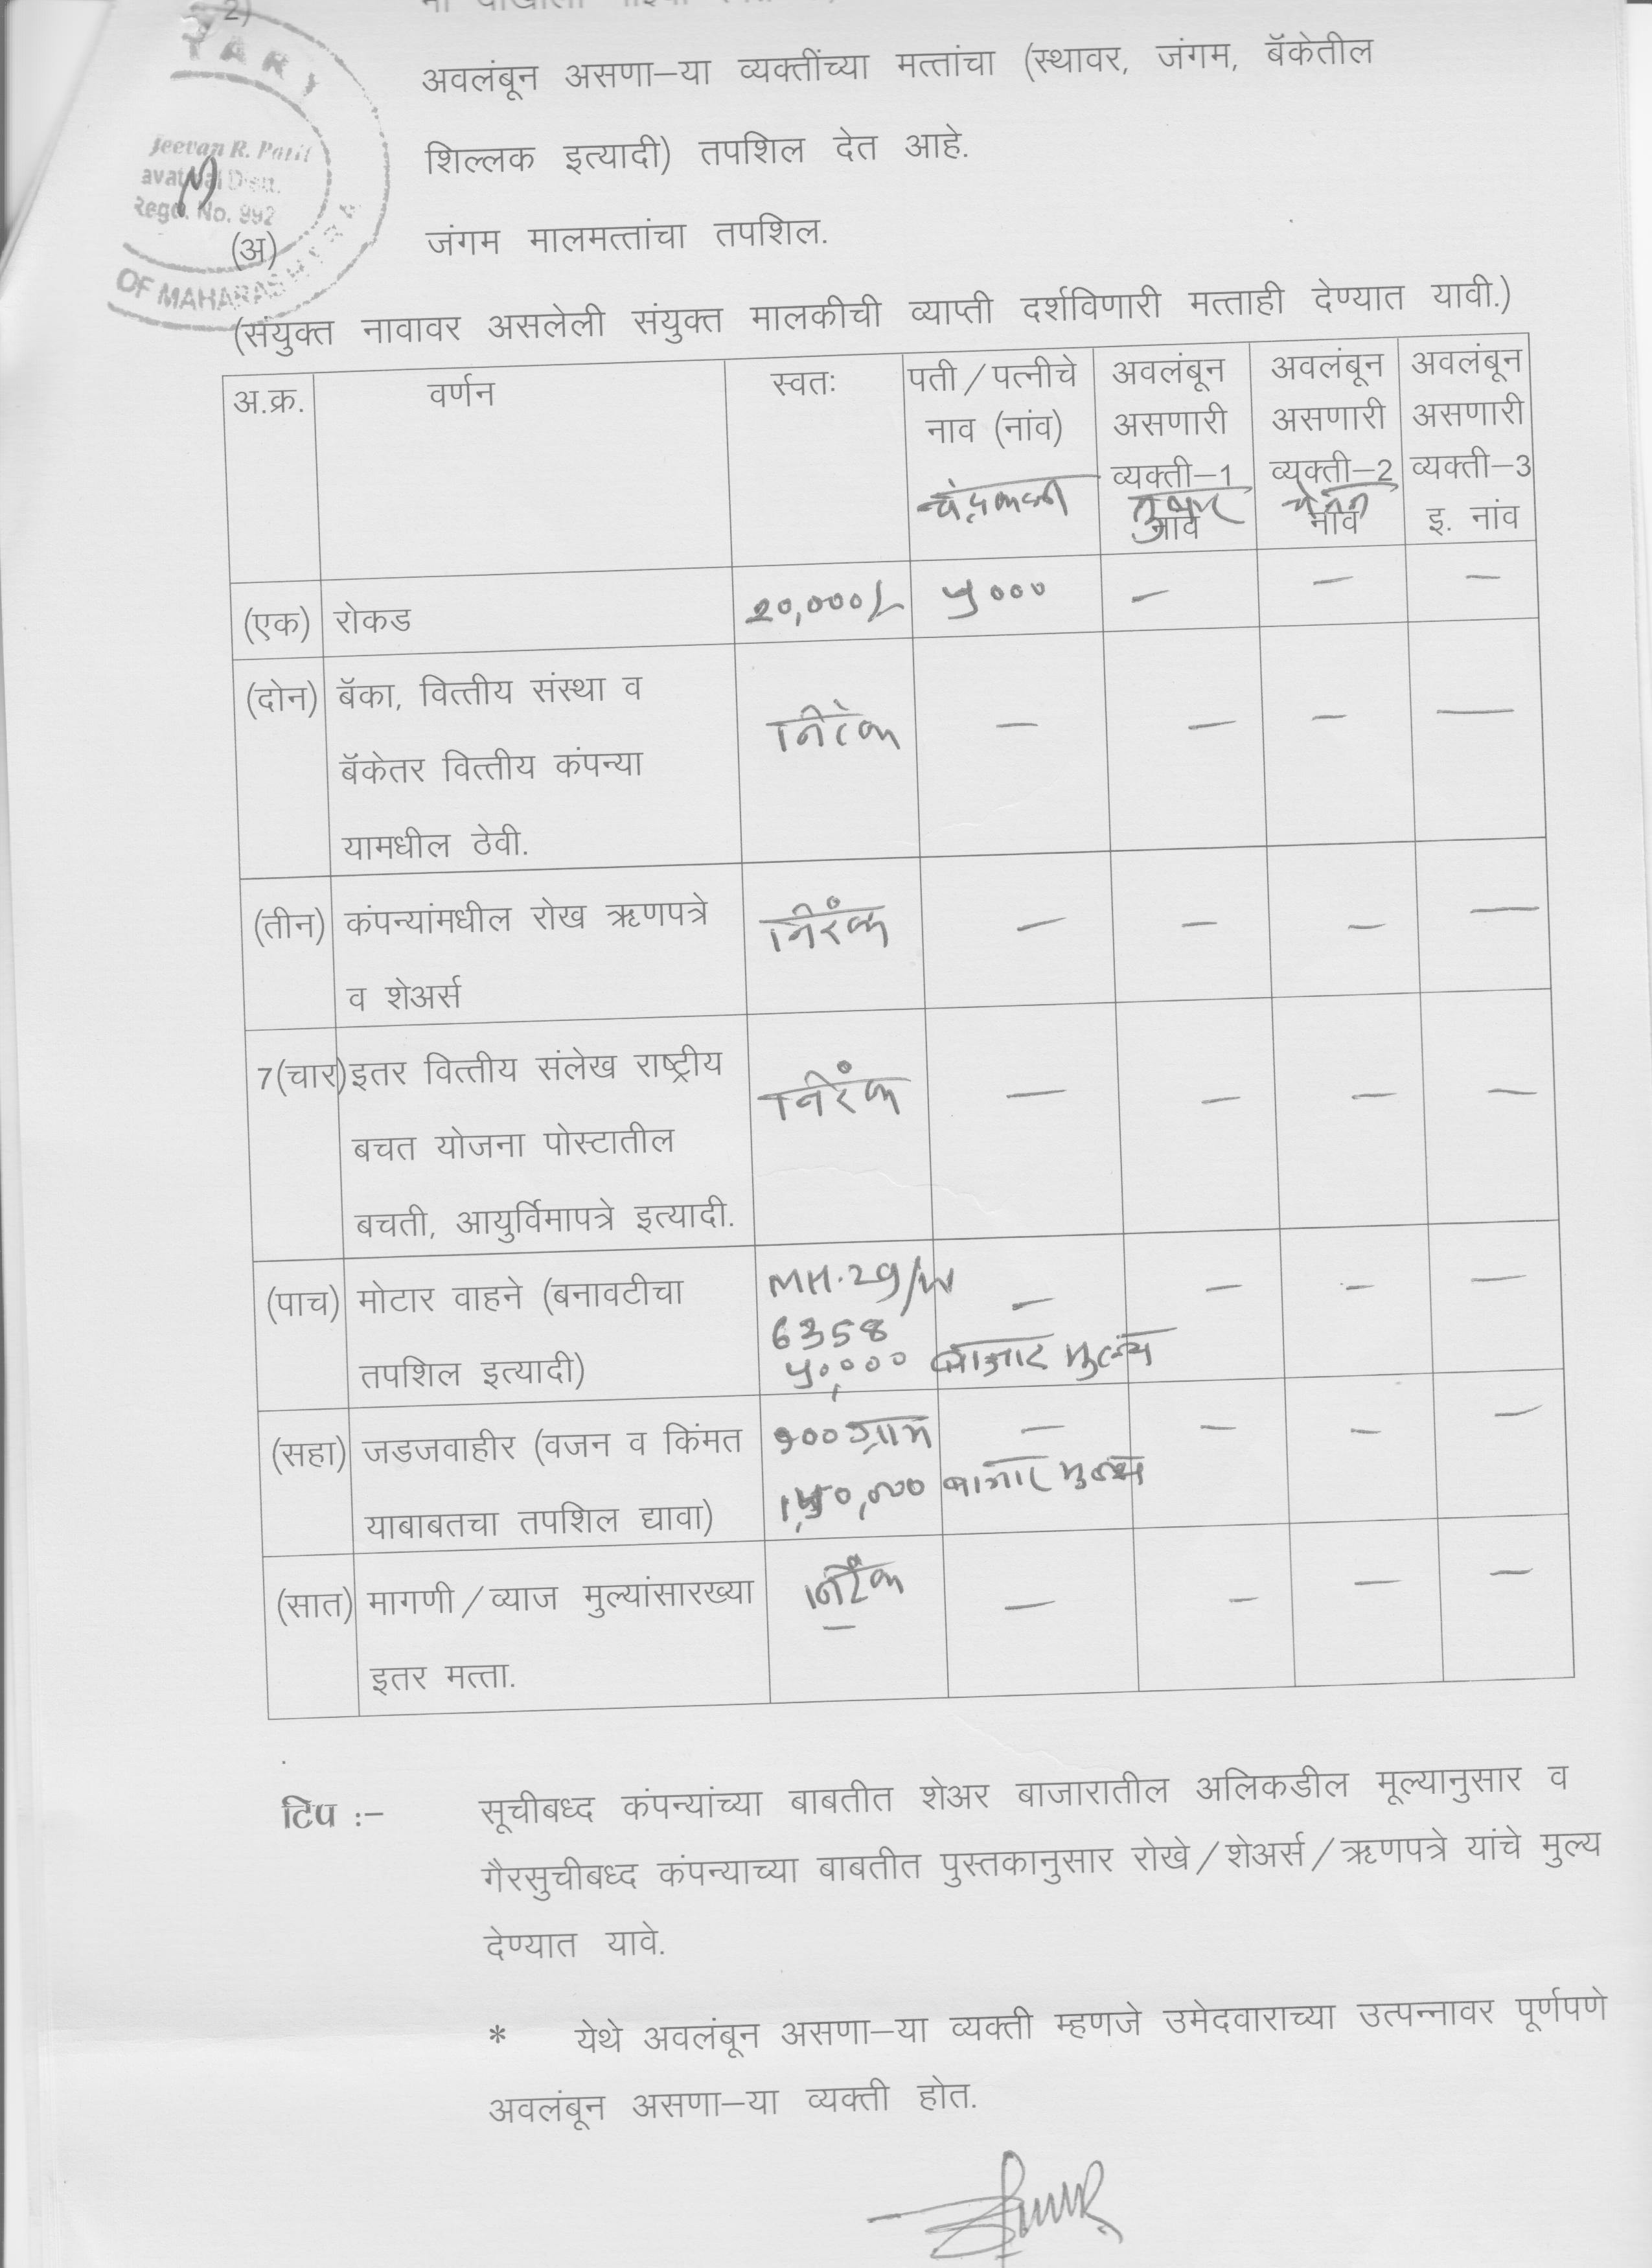 2)
TARY
Jeevan R. Patil
Regd. No. 992
OF MAHARASHTRA
अवलंबून असणा–या व्यक्तींच्या मत्तांचा (स्थावर, जंगम, बॅकेतील
शिल्लक इत्यादी) तपशिल देत आहे.
(अ) जंगम मालमत्तांचा तपशिल.
(संयुक्त नावावर असलेली संयुक्त मालकीची व्याप्ती दर्शविणारी मत्ताही देण्यात यावी.)
अ.क्र. वर्णन स्वतः पती/पत्नीचे अवलंबून अवलंबून अवलंबून
नाव (नांव) असणारी असणारी असणारी
व्यक्ती–1 व्यक्ती–2 व्यक्ती–3
नांव नांव इ. नांव
(एक) रोकड 20,000/- ५००० – – –
(दोन) बॅका, वित्तीय संस्था व निरंक – – – –
बॅकेतर वित्तीय कंपन्या
यामधील ठेवी.
(तीन) कंपन्यांमधील रोख ऋणपत्रे निरंक – – – –
व शेअर्स
7(चार) इतर वित्तीय संलेख राष्ट्रीय निरंक – – – –
बचत योजना पोस्टातील
बचती, आयुर्विमापत्रे इत्यादी.
(पाच) मोटार वाहने (बनावटीचा MH.29/ – – – –
6358
तपशिल इत्यादी) ५०,००० बाजार मुल्य
(सहा) जडजवाहीर (वजन व किंमत १०० ग्राम – – – –
याबाबतचा तपशिल द्यावा) 1,५०,००० बाजार मुल्य
(सात) मागणी/व्याज मुल्यांसारख्या निरंक – – – –
इतर मत्ता.
टिप :– सूचीबध्द कंपन्यांच्या बाबतीत शेअर बाजारातील अलिकडील मूल्यानुसार व
गैरसुचीबध्द कंपन्याच्या बाबतीत पुस्तकानुसार रोखे/शेअर्स/ऋणपत्रे यांचे मुल्य
देण्यात यावे.
* येथे अवलंबून असणा–या व्यक्ती म्हणजे उमेदवाराच्या उत्पन्नावर पूर्णपणे
अवलंबून असणा–या व्यक्ती होत.